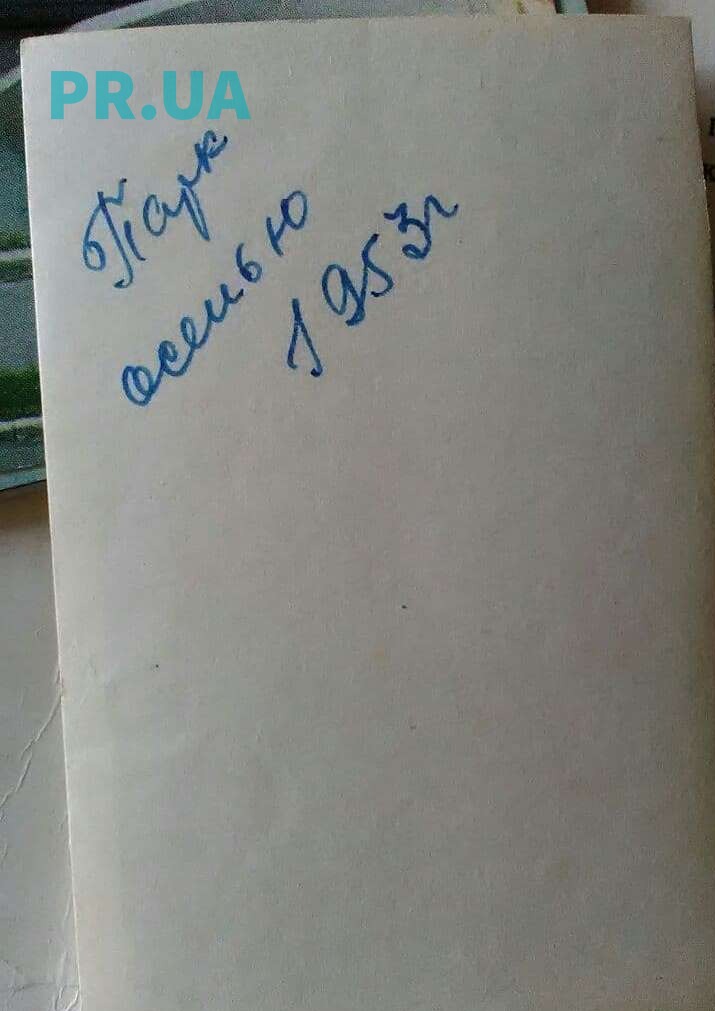 PR.UA
Парк
осенью
1953г